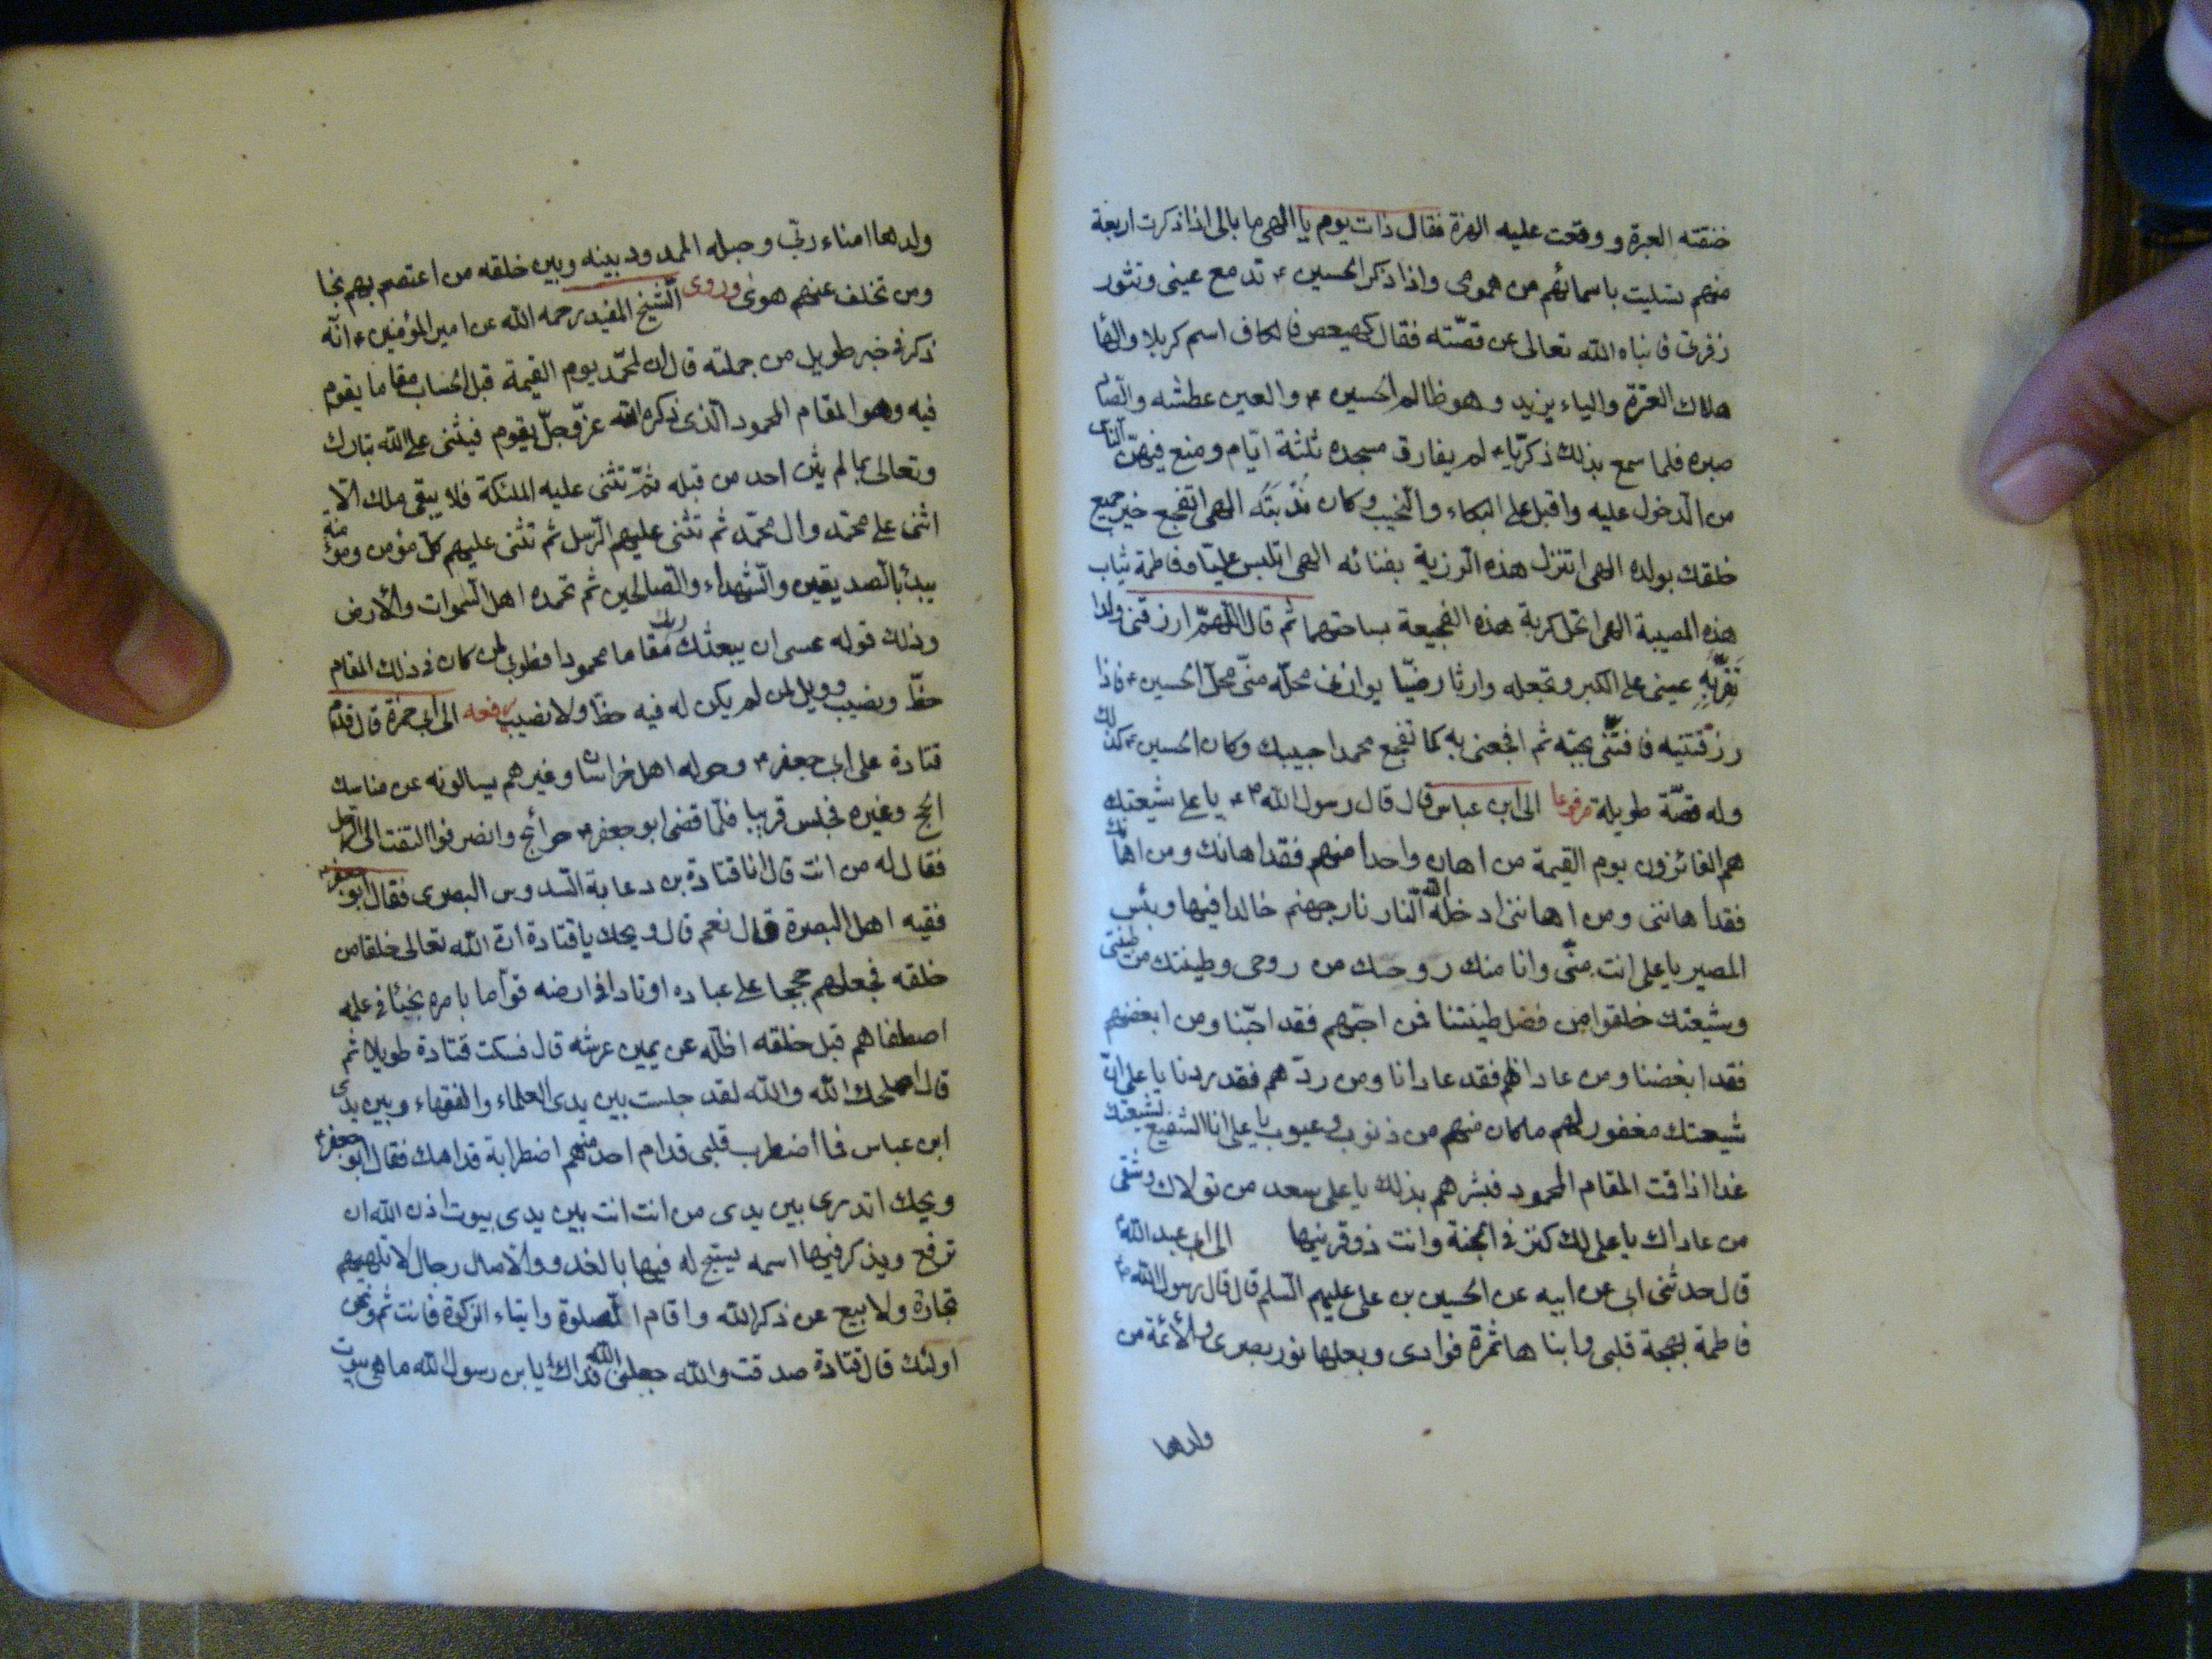 خنقته العبرة ووقعت عليه الهرة فقال ذات يوم يا الهى ما بالى اذا ذكرت اربعة
منهم تسليت باسمائهم من همومى واذا ذكر الحسين ع تدمع عينى وتثور
زفرتى فانباه الله تعالى عن قصّته فقال كهيعص فالكاف اسم كربلا والها
هلاك العترة والياء يزيد وهو ظالم الحسين ع والعين عطشه والصّاد
صبره فلما سمع بذلك زكريّا ع لم يفارق مسجده ثلثة ايّام ومنع فيهنّ النّاس
من الدخول عليه واقبل على البكاء والنحيب وكان نُدْبَتُه الهى اتفجع خير جميع
خلقك بولده الهى اتنزل هذه الرزية بفنائه الهى اتلبس عليّا وفاطمة ثياب
هذه المصيبة الهى اتحل كربة هذه الفجيعة بساحتهما ثم قال اللهمّ ارزقنى ولدا
تقرّبه عينى على الكبر وتجعله وارثا رضيّا يوازى محلّه منّى محلّ الحسين ع فاذا
رزقتنيه فافتنّى بحبّه ثم افجعنى به كما تفجع محمدا حبيبك وكان الحسين ع كذلك
وله قصّة طويلة مرفوعا الى ابن عباس قال قال رسول الله ص ع يا على شيعتك
هم الفائزون يوم القيمة من اهان واحدا منهم فقد اهانك ومن اهانك
فقد اهاننى ومن اهاننى ادخله الله النار نار جهنم خالدا فيها وبئس
المصير يا على انت منّى وانا منك روحك من روحى وطينتك من طينتى
وشيعتك خلقوا من فضل طينتنا فمن احبّهم فقد احبّنا ومن ابغضهم
فقد ابغضنا ومن عاداهم فقد عادانا ومن ردّهم فقد ردنا يا على انّ
شيعتك مغفور لهم ما كان منهم من ذنوب وعيوب يا على انا الشفيع لشيعتك
غدا اذا قمت المقام المحمود فبشرهم بذلك يا على سعد من تولاك وشقى
من عاداك يا على لك كنز فى الجنة وانت ذو قرنيها الى ابى عبد الله ع
قال حدثنى ابى عن ابيه عن الحسين بن على عليهم السلم قال قال رسول الله ص
فاطمة بهجة قلبى وابناها ثمرة فوادى وبعلها نور بصرى والأئمة من
ولدها
ولدها امناء ربّى وحبله الممدود بينه وبين خلقه من اعتصم بهم نجا
ومن تخلف عنهم هوى وروى الشيخ المفيد رحمه الله عن امير المؤمنين ع انّه
ذكر فى خبر طويل من جملته قال ان لمحمّد يوم القيمة قبل الحساب مقاما يقوم
فيه وهو المقام المحمود الذى ذكره الله عزّ وجلّ يقوم فيثنى على الله تبارك
وتعالى بما لم يثن احد من قبله ثمّ تثنى عليه الملئكة فلا يبقى ملك الّا
اثنى على محمّد وال محمّد ثم تثنى عليهم الرّسل ثم تثنى عليهم كلّ مؤمن ومؤمنة
يبدأ بالصديقين والشهداء والصالحين ثم تحمده اهل السموات والأرض
وذلك قوله عسى ان يبعثك ربك مقاما محمودا فطوبى لمن كان فى ذلك المقام
حظّ ونصيب وويل لمن لم يكن له فيه حظّ ولا نصيب يرفعه الى ابى حمزة قال قدم
قتادة على ابى جعفر ع وحوله اهل خراسان وغيرهم يسالونه عن مناسك
الحج وغيره فجلس قريبا فلمّا قضى ابو جعفر ع حوائج وانصرفوا التفت الى الرجل
فقال له من انت قال انا قتادة بن دعابة السدوس البصرى فقال ابو جعفر ع
فقيه اهل البصرة قال نعم قال ويحك يا قتادة انّ الله تعالى خلق خلقا من
خلقه فجعلهم حججا على عباده اوتادا فى ارضه قوّاما بامره نجبئا فى علمه
اصطفاهم قبل خلقه اظله عن يمين عرشه قال فسكت قتادة طويلا ثم
قال اصلحك الله والله لقد جلست بين يدى العلماء والفقهاء وبين يدى
ابن عباس فما اضطرب قلبى قدام احد منهم اضطرابة قدامك فقال ابو جعفر ع
ويحك اتدرى بين يدى من انت انت بين يدى بيوت اذن الله ان
ترفع ويذكر فيها اسمه يسبّح له فيها بالغدو والاصال رجال لا تلهيهم
تجارة ولا بيع عن ذكر الله واقام الصلوة وايتاء الزكوة فانت ثم ونحن
اولئك قال قتادة صدقت والله جعلنى الله فداك يابن رسول الله ما هى بيوت